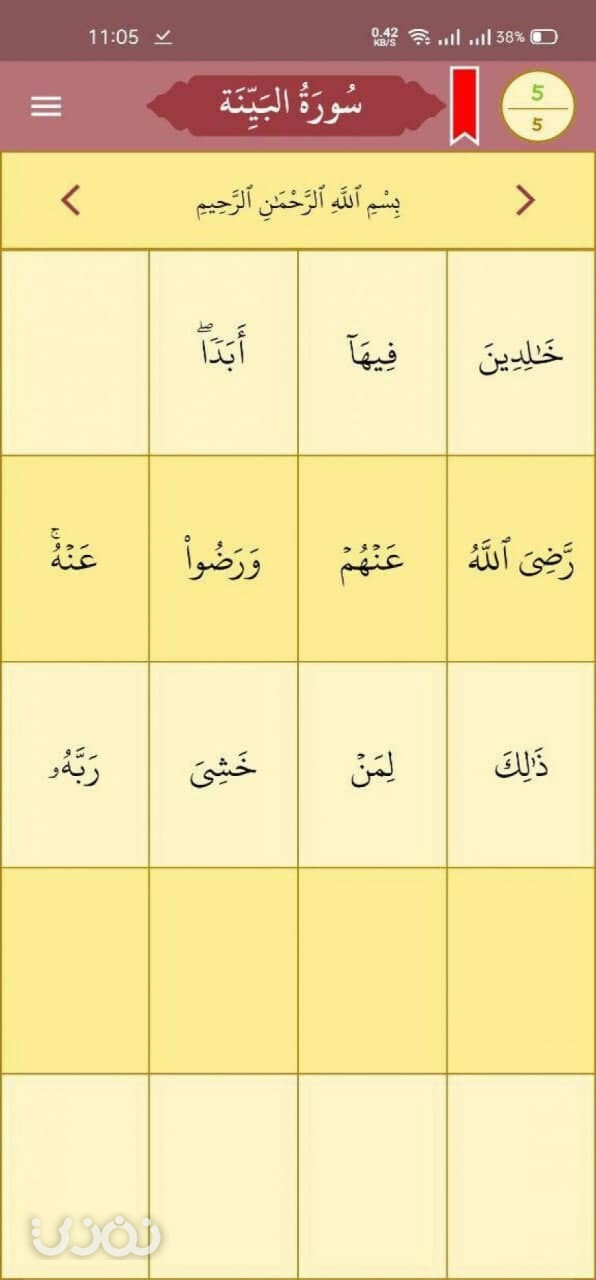 11:05 0.42 KB/S 38%
سُورَةُ البَيِّنَة
5
5
بِسْمِ ٱللَّهِ ٱلرَّحْمَٰنِ ٱلرَّحِيمِ
خَٰلِدِينَ فِيهَآ أَبَدًاۖ
رَّضِىَ ٱللَّهُ عَنْهُمْ وَرَضُوا۟ عَنْهُۚ
ذَٰلِكَ لِمَنْ خَشِىَ رَبَّهُۥ